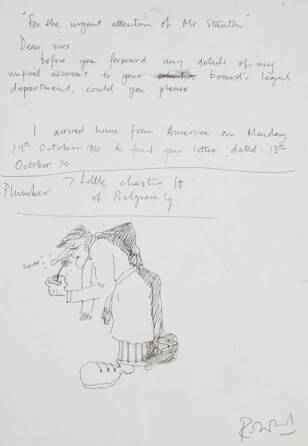 "For the urgent attention of Mr. Stanton"
Dear Sirs,
before you forward any details of my
unpaid account to your board's legal
department, could you please
I arrived home from America on Monday
19th October 1970 to find your letter dated 13th
October 70
Plumber 7 Little Chester St
of Belgrave Sq.